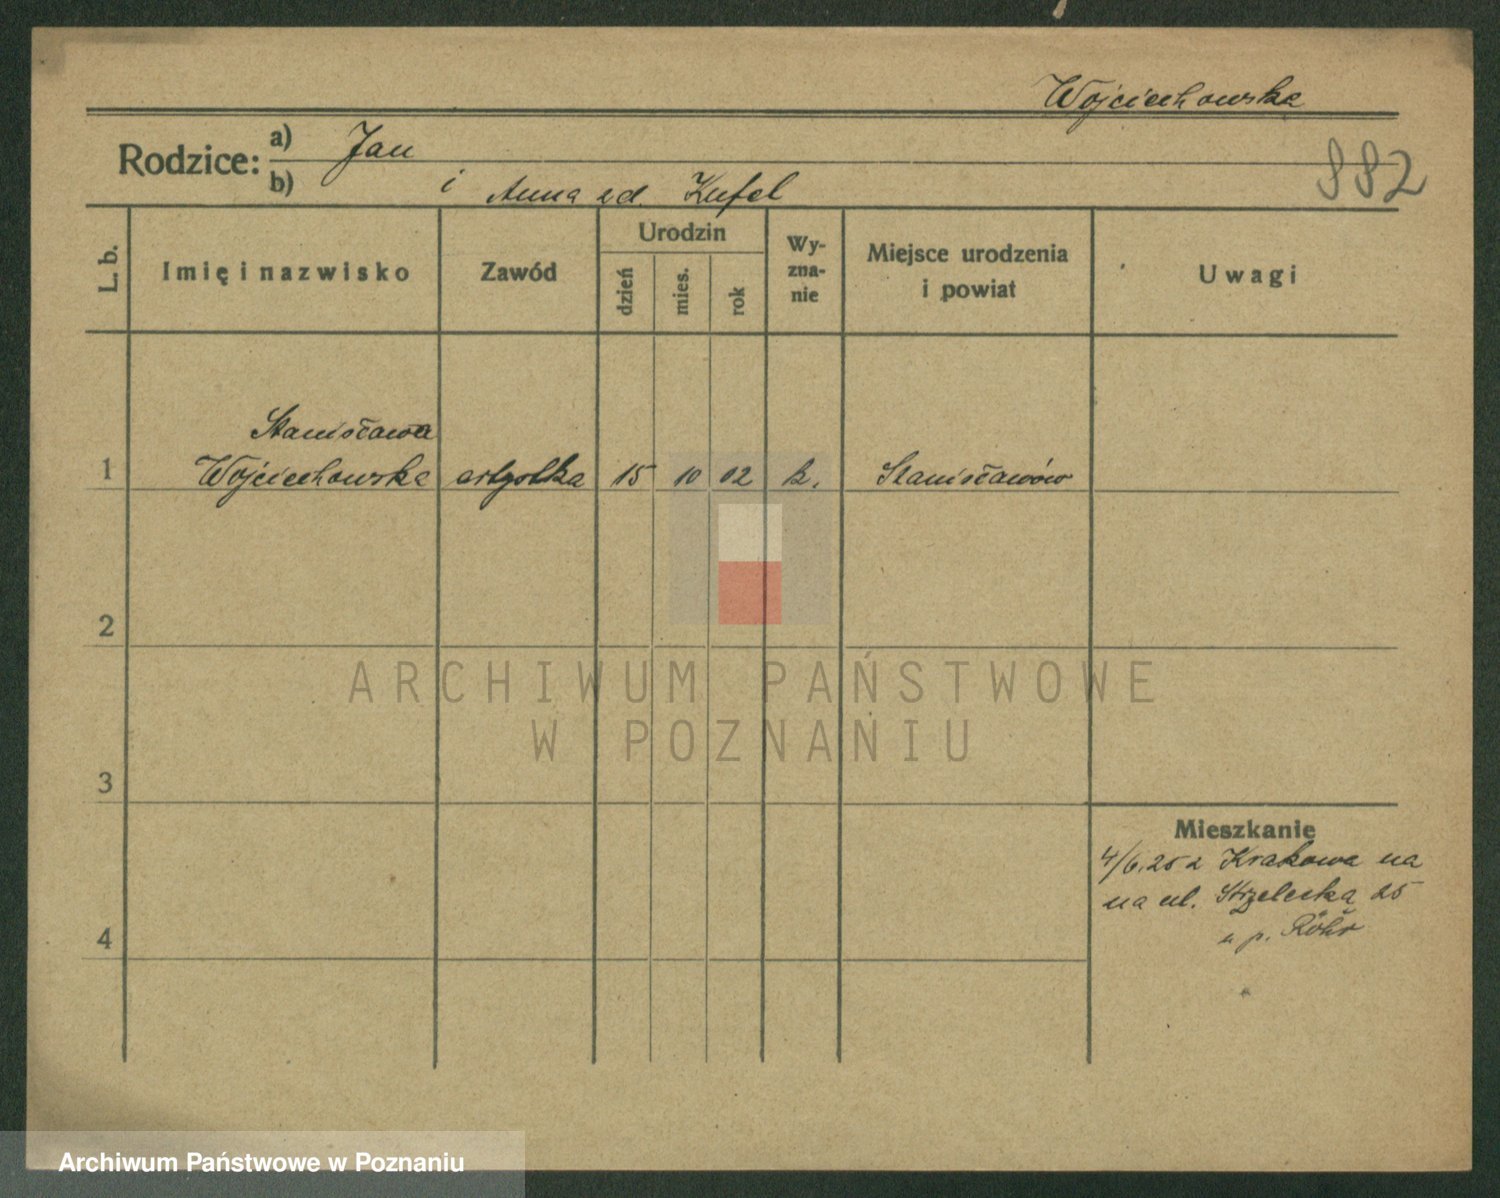 Wojciechowska
Rodzice: a) Jan
b) i Anna zd. Kufel
882
L. b.
Imię i nazwisko
Zawód
Urodzin
dzień
mies.
rok
Wy-
zna-
nie
Miejsce urodzenia
i powiat
Uwagi
Stanisława
1 Wojciechowska artystka 15 10 02 k. Stanisławów
2
ARCHIWUM PAŃSTWOWE
W POZNANIU
3
Mieszkanie
4/6.25 z Krakowa na
na ul. Strzelecką 25
u p. Röhr
4
Archiwum Państwowe w Poznaniu